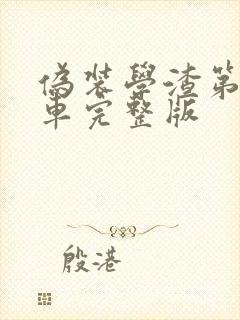 偽裝學渣第
車完整版
殷港